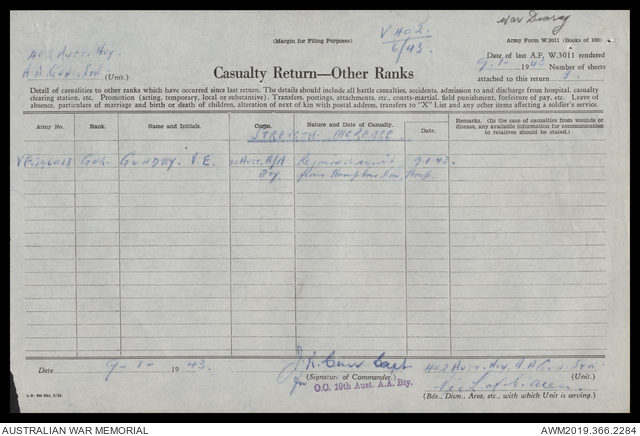 War Diary
V 402
6/43.
(Margin for Filing Purposes)
Army Form W.3011 (Books of 100)
402 Aust. Hvy.
A A Gun Stn (Unit.)
Date of last A.F. W.3011 rendered
9-1- 1943 Number of sheets
attached to this return 3.
Casualty Return—Other Ranks
Detail of casualties to other ranks which have occurred since last return. The details should include all battle casualties, accidents, admission to and discharge from hospital, casualty
clearing station, etc. Promotion (acting, temporary, local or substantive). Transfers, postings, attachments, etc., courts-martial, field punishment, forfeiture of pay, etc. Leave of
absence, particulars of marriage and birth or death of children, alteration of next of kin with postal address, transfers to "X" List and any other items affecting a soldier's service.
Army No. Rank. Name and Initials. Corps. Nature and Date of Casualty. Date. Remarks. (In the case of casualties from wounds or
disease, any available information for communication
to relatives should be stated.)
STRENGTH INCREASE
Gnr. GUNDRY. V. E. Aust. A/A Rejoined unit 9.1.43.
Bty. from Hosp.
Date 9-1- 1943. J. K. Capt 402 Aust. Hvy. A A Gun Stn
(Signature of Commander.) (Unit.)
for O.C. 19th Aust. A.A. Bty.
(Bde., Divn., Area, etc., with which Unit is serving.)
AUSTRALIAN WAR MEMORIAL AWM2019.366.2284